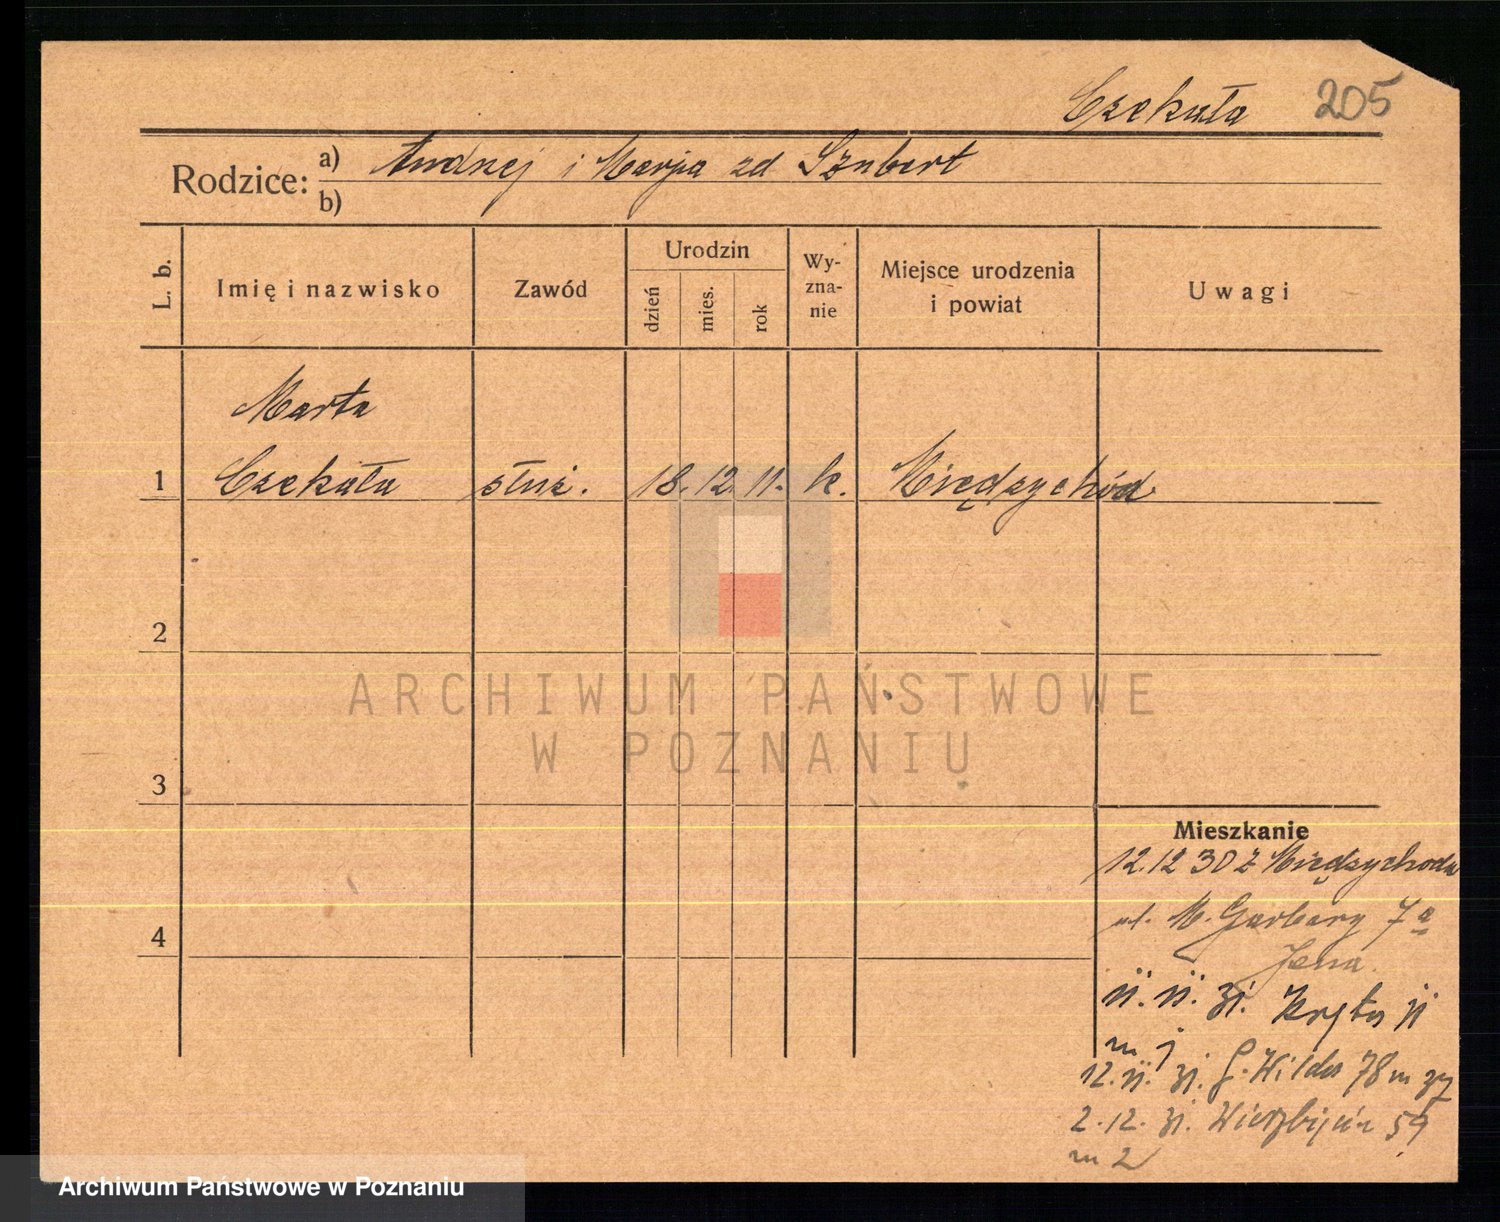 Czekała 205
Rodzice: a) Andrzej i Marja zd Sznbert
b)
L. b.
Imię i nazwisko
Zawód
Urodzin
dzień
mies.
rok
Wy-
zna-
nie
Miejsce urodzenia
i powiat
Uwagi
Marta
1 Czekała służ. 18. 12. 11. k. Międzychód
2
3
4
Mieszkanie
12.12 30 z Międzychoda
ul. M. Garbary 7a
Jena.
11. 11. 31. Kręta 11
m 1
12. 11. 31. G. Wilda 78 m 37
2. 12. 31. Wierzbięcice 59
m 2
ARCHIWUM PAŃSTWOWE
W POZNANIU
Archiwum Państwowe w Poznaniu